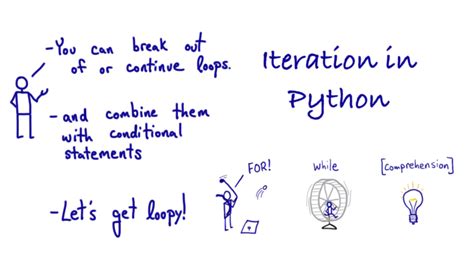 -You can break out
of or continue loops.
-and combine them
with conditional
statements
-Let's get loopy!
Iteration in
Python
FOR!
While
[Comprehension]